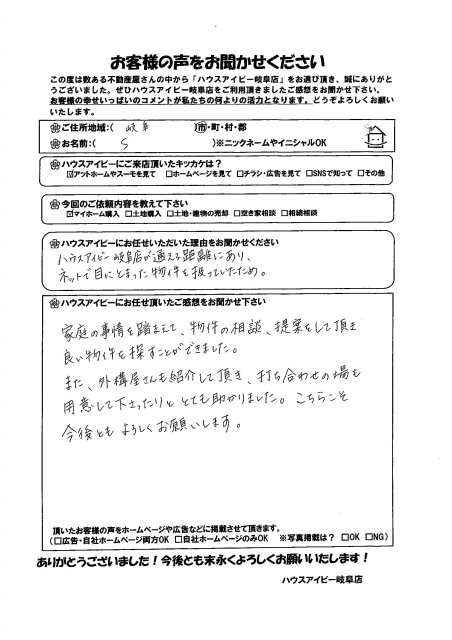 お客様の声をお聞かせください
この度は数ある不動産屋さんの中から「ハウスアイビー岐阜店」をお選び頂き、誠にありがと
うございました。ぜひハウスアイビー岐阜店をご利用頂きましたご感想をお聞かせください。
お客様の幸せいっぱいのコメントが私たちの何よりの活力となります。どうぞよろしくお願い
いたします。
ご住所地域:( 岐阜 )市・町・村・郡
お名前:( S )※ニックネームやイニシャルOK
ハウスアイビーにご来店頂いたキッカケは?
☑アットホームやスーモを見て □ホームページを見て □チラシ・広告を見て □SNSで知って □その他
今回のご依頼内容を教えて下さい
☑マイホーム購入 □土地購入 □土地・建物の売却 □空き家相談 □相続相談
ハウスアイビーにお任せいただいた理由をお聞かせください
ハウスアイビー岐阜店が通える距離にあり、
ネットで目にとまった物件を扱っていたため。
ハウスアイビーにお任せ頂いたご感想をお聞かせ下さい
家庭の事情を踏まえて、物件の相談、提案をして頂き
良い物件を探すことができました。
また、外構屋さんも紹介して頂き、打ち合わせの場も
用意して下さったりと とても助かりました。こちらこそ
今後とも よろしくお願いします。
頂いたお客様の声をホームページや広告などに掲載させて頂きます。
(□広告・自社ホームページ両方OK □自社ホームページのみOK ※写真掲載は? □OK □NG)
ありがとうございました!今後とも末永くよろしくお願いいたします!
ハウスアイビー岐阜店